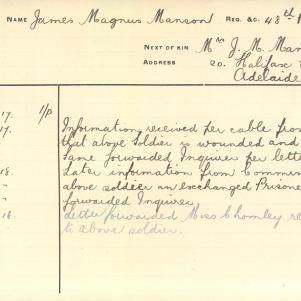 NAME James Magnus Manson REG. &C. 48th
NEXT OF KIN Mrs J. M. Man
ADDRESS 20. Halifax
Adelaide
17. 1/P Information received per cable from
17. that above soldier is wounded and
Same forwarded Inquirer per lette
18. Later information from Commun
" above soldier an exchanged Prisone
" forwarded Inquirer
18. Letter forwarded Miss Chomley re
to above soldier.